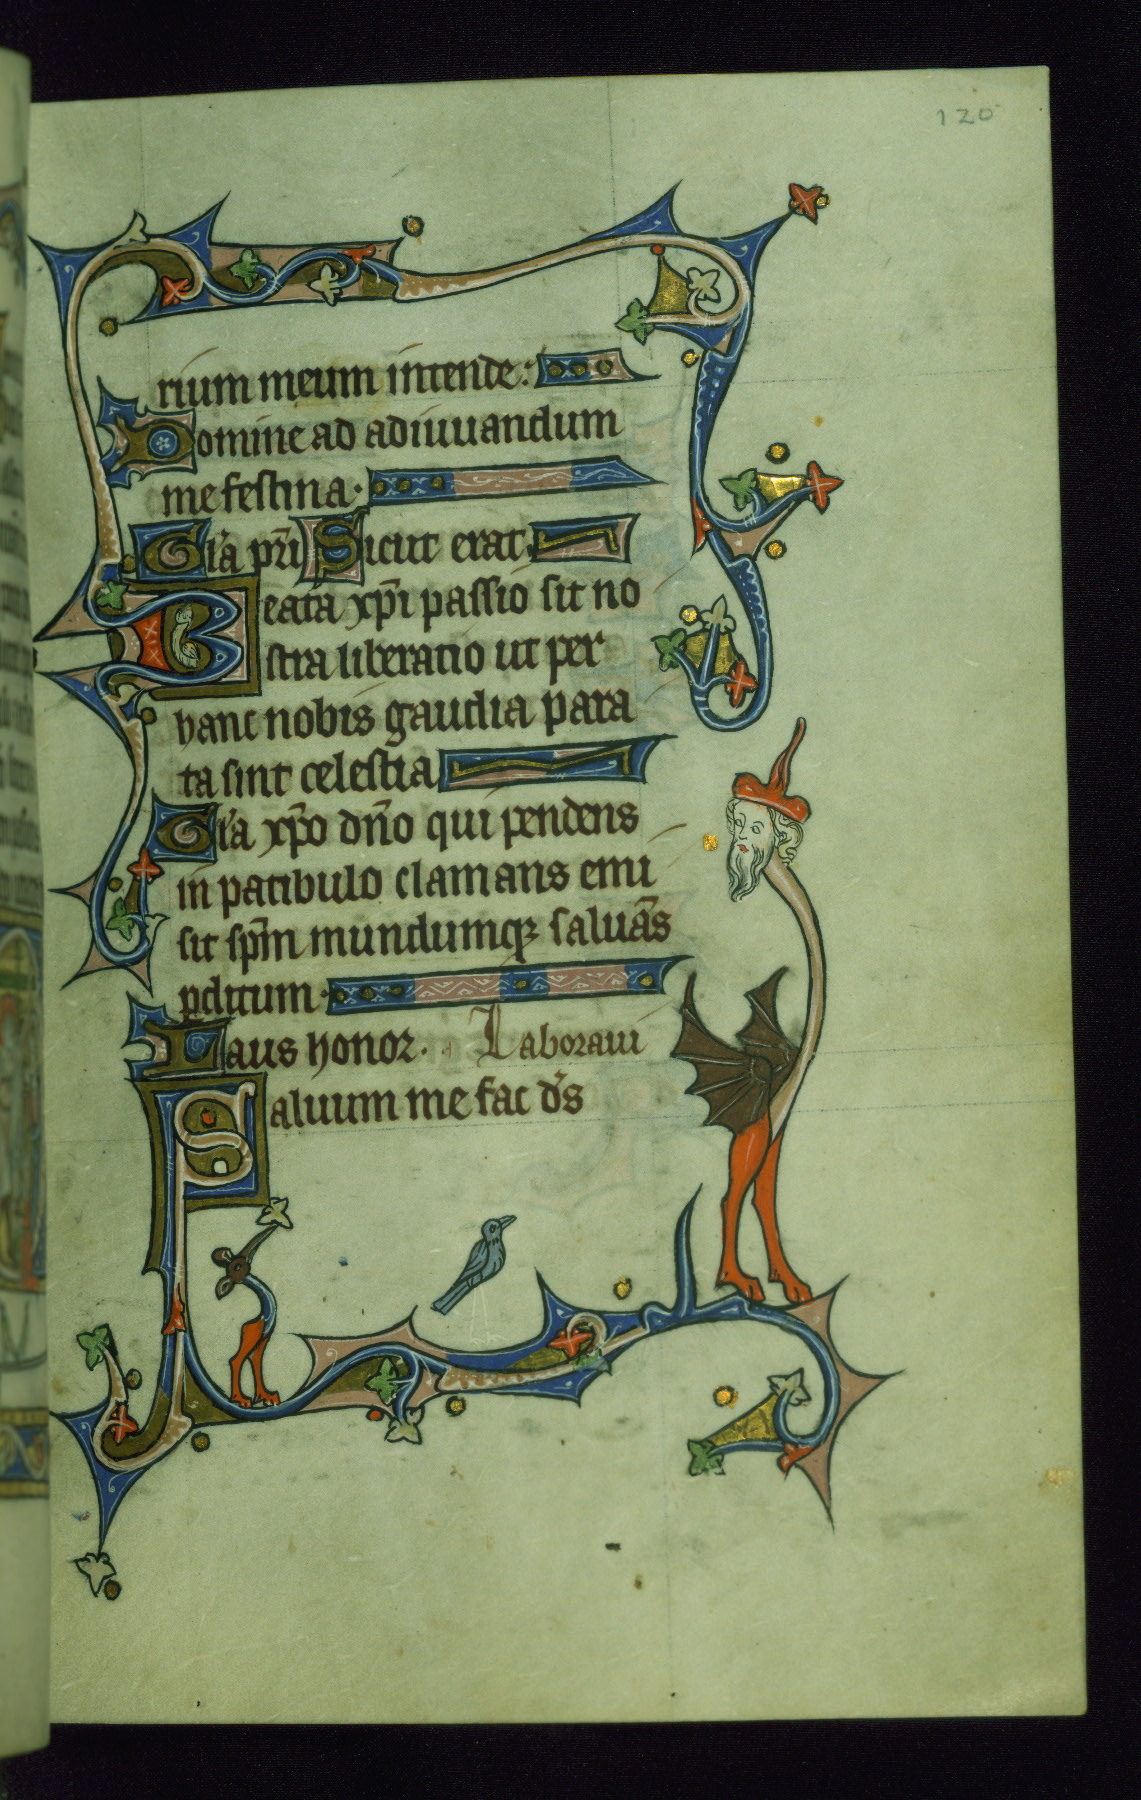 120
rium meum intende:
Domine ad adiuuandum
me festina.
Gl'a pr̄i Sicut erat.
Beata xp̄i passio sit no
stra liberatio ut per
hanc nobis gaudia para
ta sint celestia
Gl'a xp̄o dn̄o qui pendens
in patibulo clamans emi
sit sp̄m mundumqꝫ saluās
ꝑditum.
Laus honor. Laboraui
Saluum me fac d's